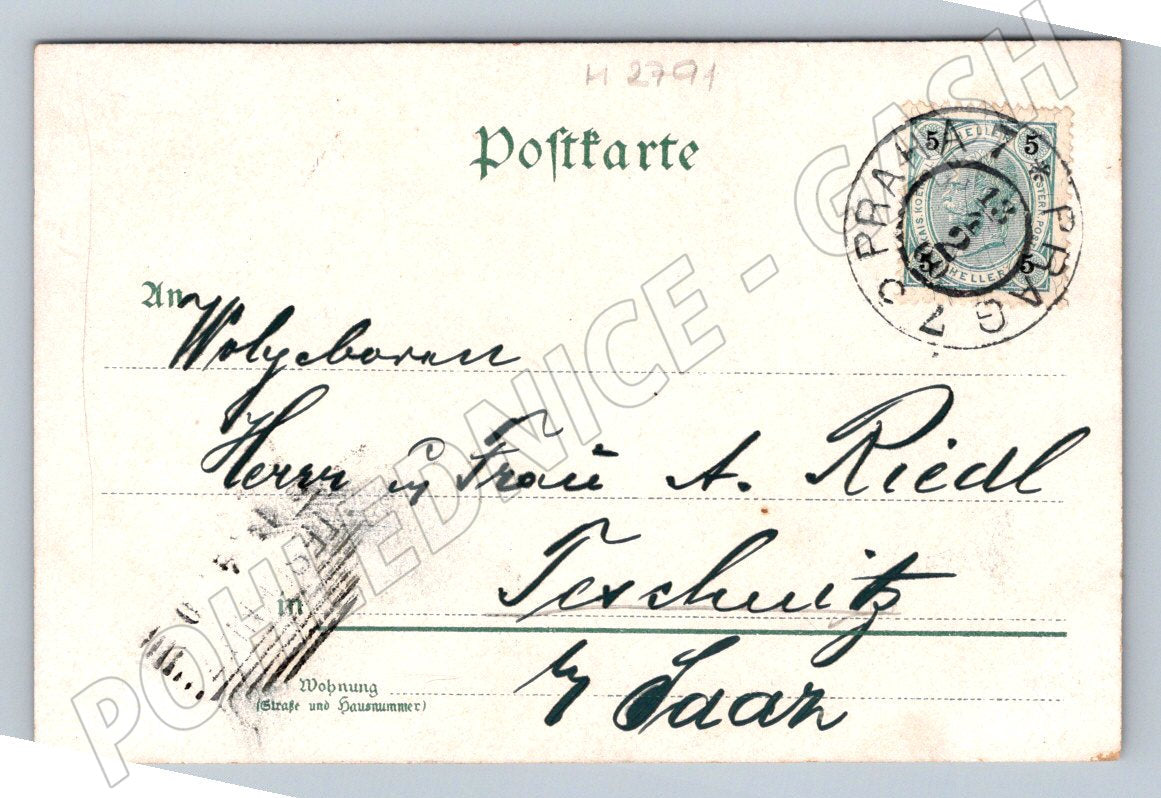 H 2791
Postkarte
5 HELLER 5
KAIS. KOE STERR. POST
5 HELLER 5
PRAHA 7 * PRAG 7 C
13 2 00
An
Wolgeboren
Herrn u Frau A. Riedl
in
Teschnitz
b/ Saaz
Wohnung
(Straße und Hausnummer)
POHLEDNICE - GASH